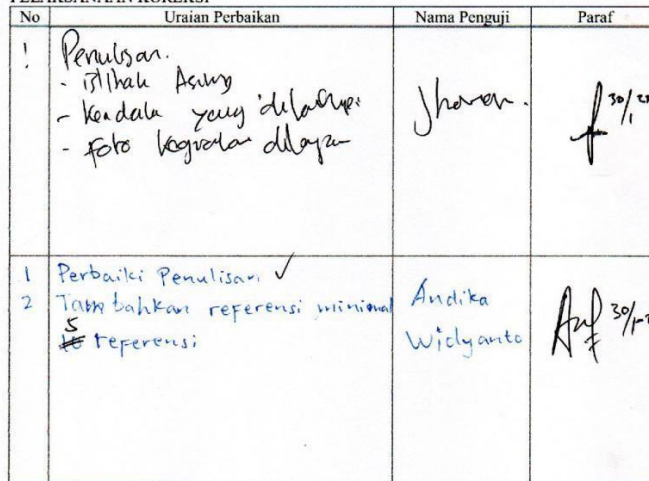 PELAKSANAAN KOREKSI
No Uraian Perbaikan Nama Penguji Paraf
1 Penulisan.
- Istilah Asing
- Kendala yang dihadapi
- Foto kegiatan dilapan
Jhoner. 30/1
1 Perbaiki Penulisan ✓
2 Tambahkan referensi minimal
5
referensi
Andika
Widyanto
30/1